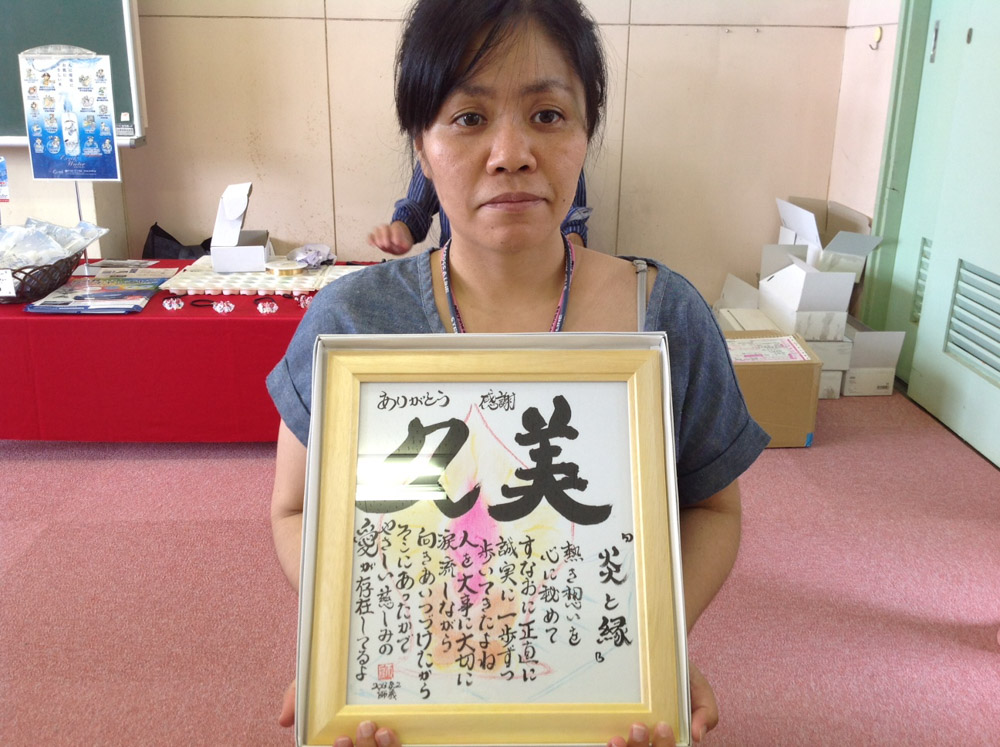 ありがとう 感謝
久美
〝炎と縁〟
熱き想いを
心に秘めて
すなおに正直に
誠実に一歩ずつ
歩いてきたよね
人を大事に大切に
涙流しながら
向きあいつづけたから
そこにあったかで
やさしい慈しみの
愛が存在してるよ